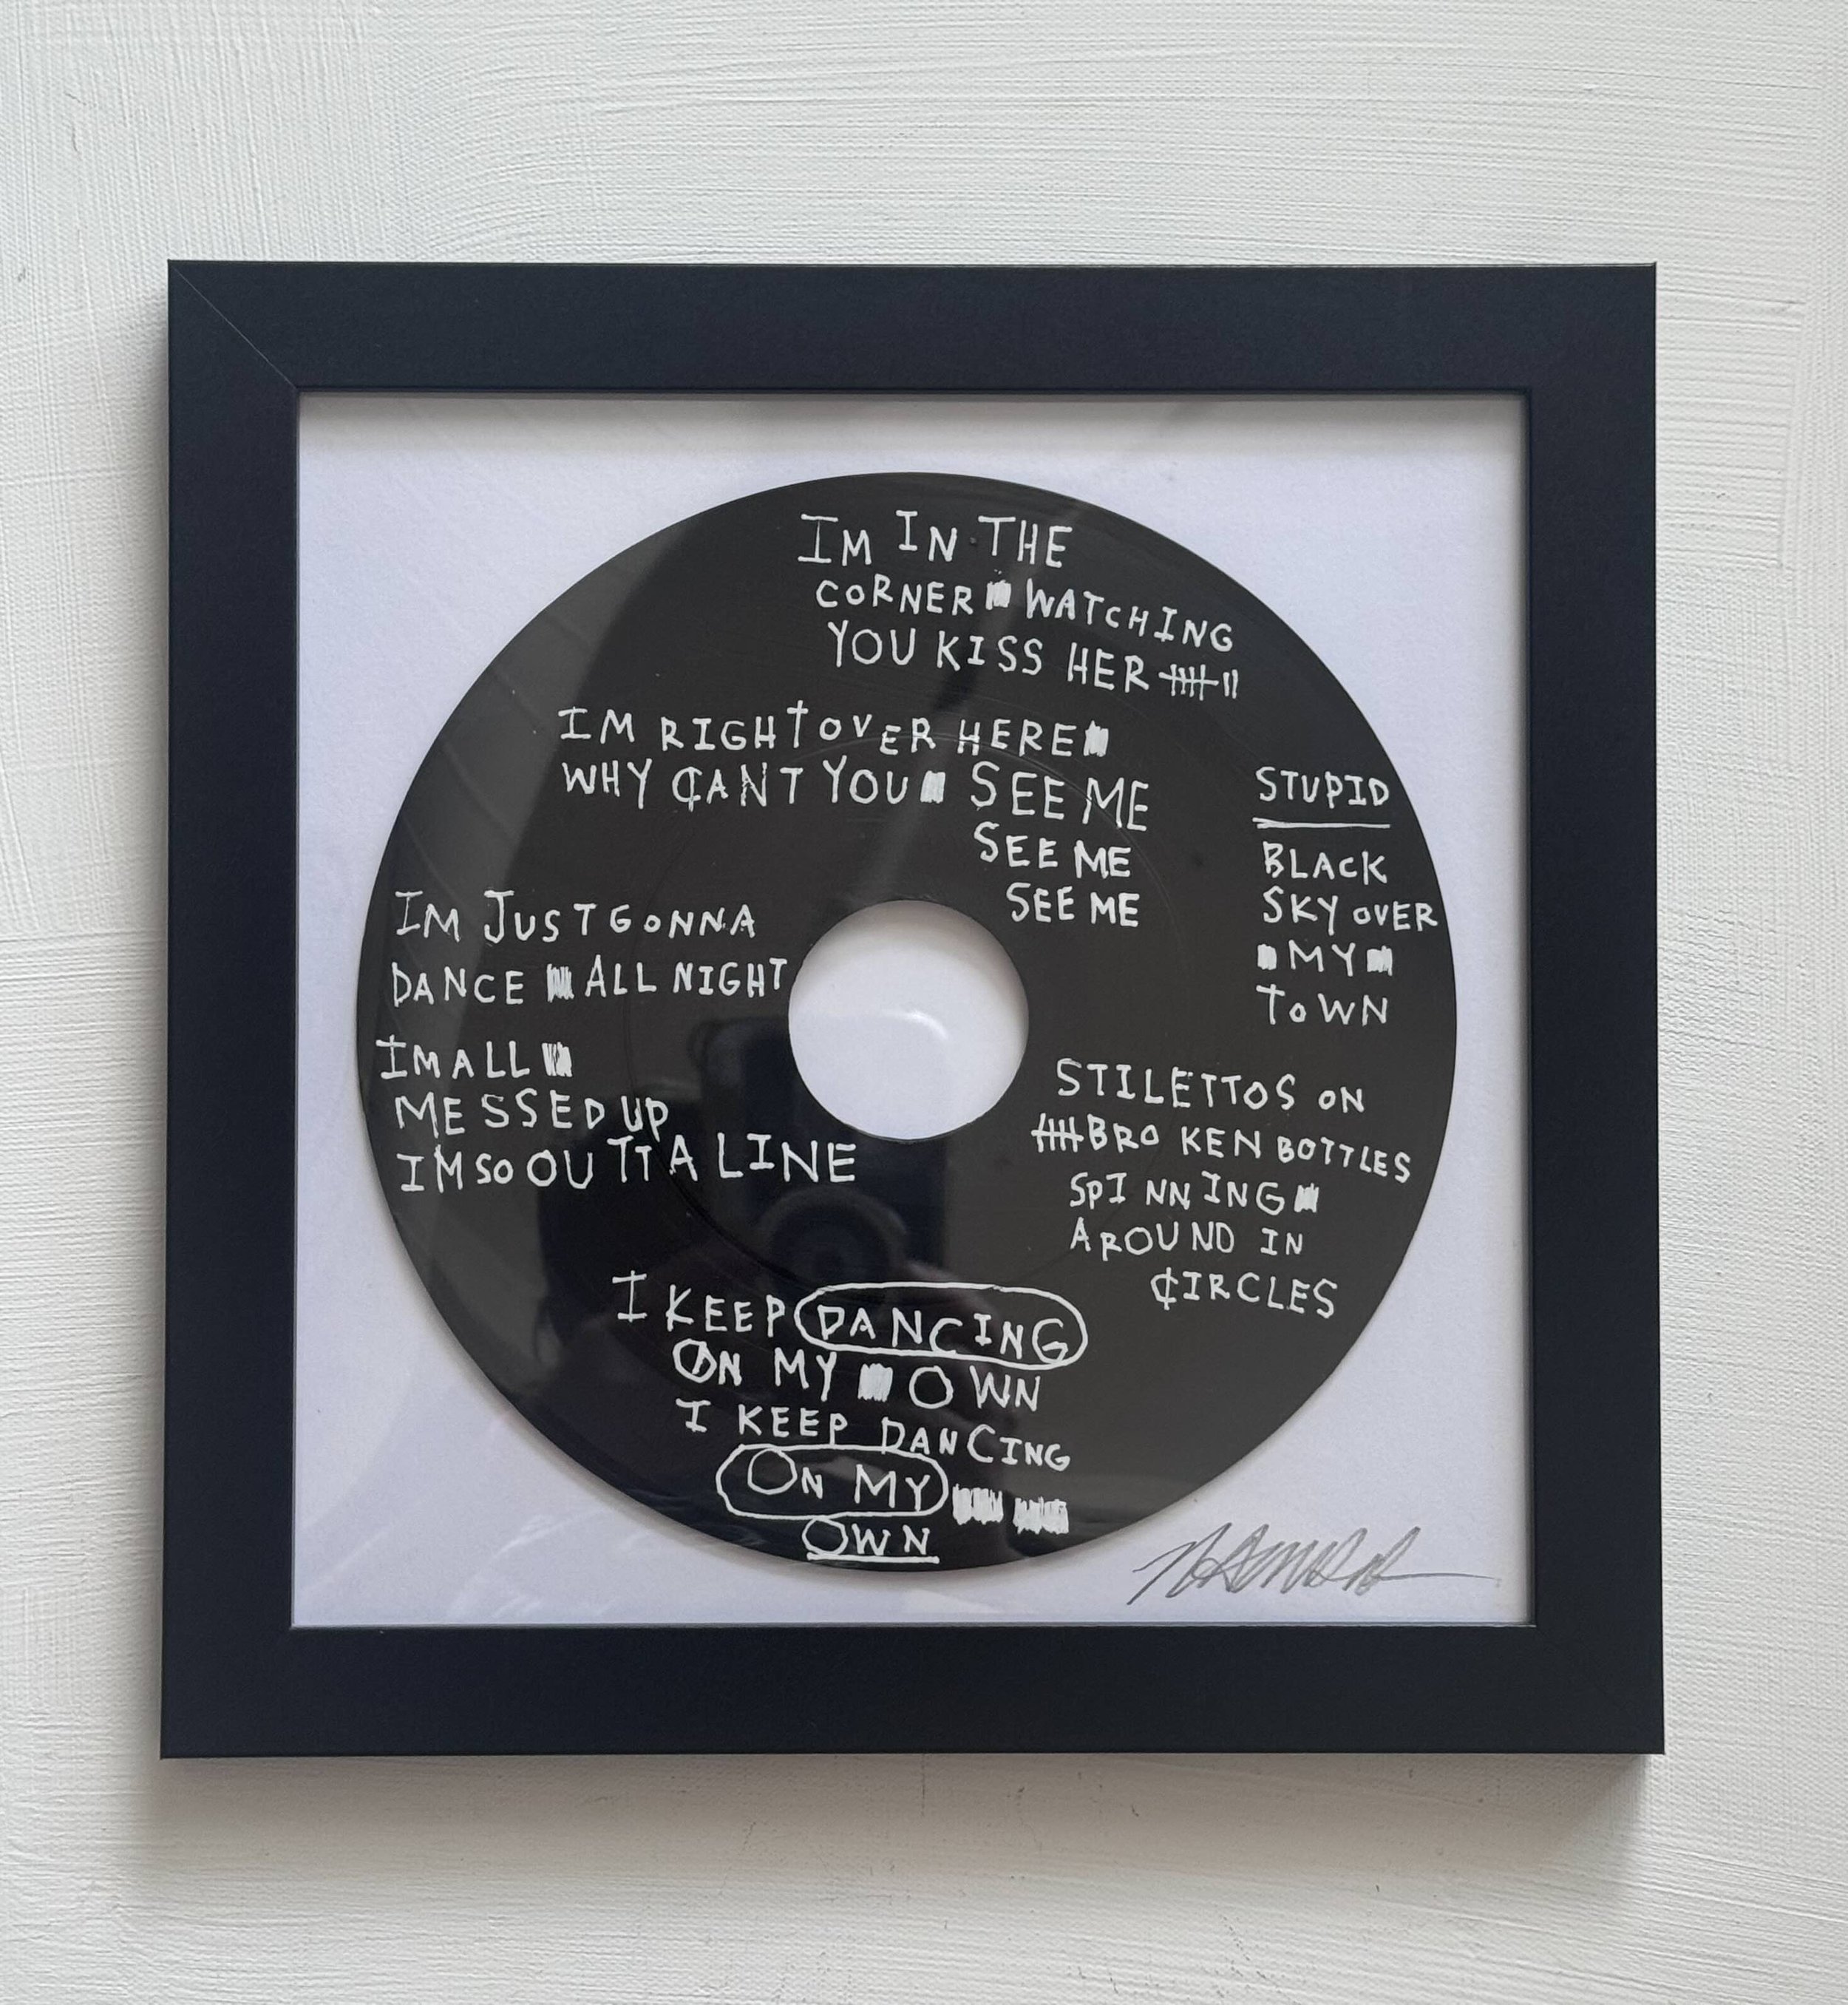 IM IN THE
CORNER WATCHING
YOU KISS HER
IM RIGHT OVER HERE
WHY CANT YOU SEE ME
SEE ME
SEE ME
STUPID
BLACK
SKY OVER
MY
TOWN
IM JUST GONNA
DANCE ALL NIGHT
IM ALL
MESSED UP
IM SO OUTTA LINE
STILETTOS ON
BROKEN BOTTLES
SPINNING
AROUND IN
CIRCLES
I KEEP DANCING
ON MY OWN
I KEEP DANCING
ON MY
OWN